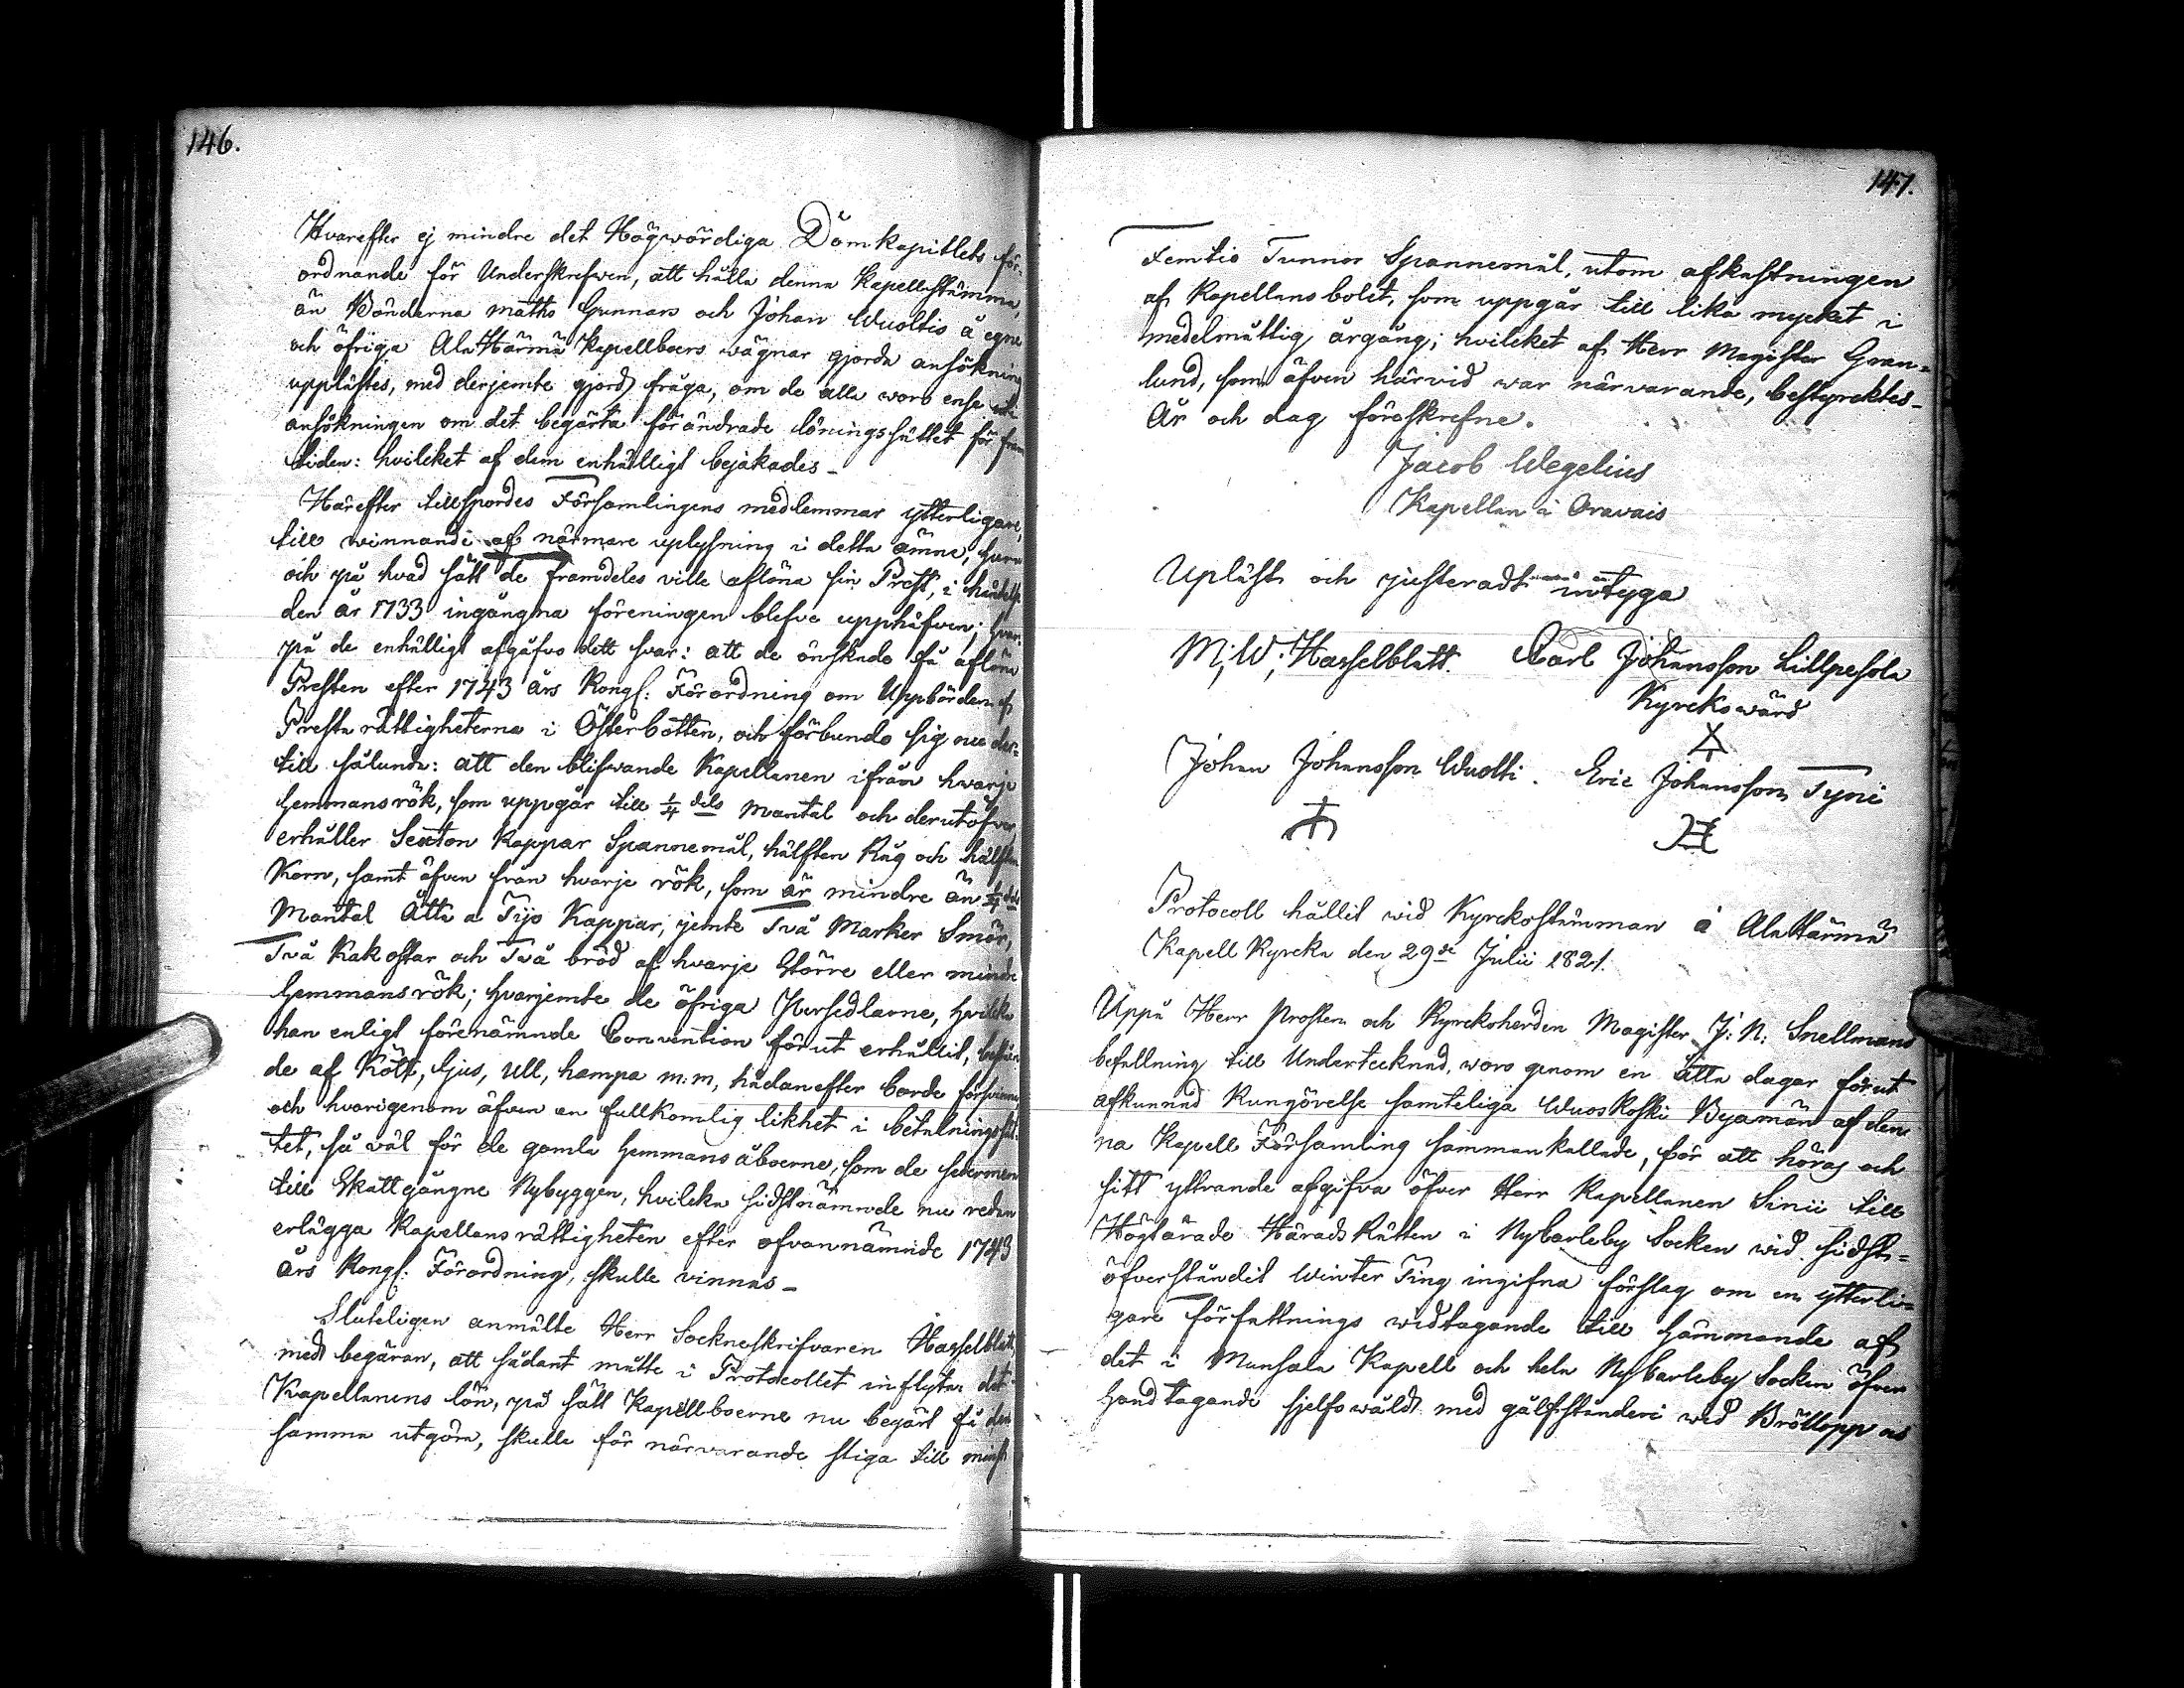 146.
Hvarefter ej mindre det Högwördiga Domkapitlets för-
ordnande för Underskrefwen, att hålla denna Kapellstämma,
än Bönderna Matths Gunnars och Johan Wuoltis å egne
och öfriga Ala Härmä Kapellboers wägnar gjorda ansökning
upplästes, med derjemte gjord fråga, om de alla woro ense
ansökningen om det begärta förändrade löningssättet för fram
tiden: hvilcket af dem enhälligt bejakades_
Härefter tillspordes Församlingens medlemmar ytterligare,
till winnande af närmare uplysning i detta ämne, huru
och på hvad sätt de framdeles ville aflöna sin Prest, i händelse
den år 1733 ingångna föreningen blefve upphäfven; hvar-
på de enhälligt afgåfvo dett svar: att de önskade få aflöna
Presten efter 1743 års Kongl: Förordning om Uppbörden af
Presta rättigheterna i Österbotten, och förbundo sig nu der-
till sålunda: att den blifwande Kapellanen ifrån hwarje
hemmansrök, som uppgår till 1/4 dels Mantal och derutöfver
erhåller Sexton Kappar Spannemål, hälften Råg och hälften
Korn, samt äfven från hvarje rök, som är mindre än 1/4 dels
Mantal Åtta a Tijo Kappar, jemte Två Marker Smör,
Två Kakostar och Två bröd af hvarje Större eller mindre
hemmansrök; hvarjemte de öfriga Persedlarne, hvilcka
han enligt förenämnde Convention förut erhållit, bestån
de af Kött, ljus, Ull, hampa m:m, hädanefter borde försvinna
och hvarigenom äfven en fullkomlig likhet i betalningssät
tet, så wäl för de gamla hemmans åboerne, som de sedermera
till Skattgångne Nybyggen, hvilcka sidstnämnde nu redan
erlägga Kapellans rättigheten efter ofvannämnde 1743
års Kongl: Förordning, skulle vinnas_
Sluteligen anmälte Herr Sockneskrifvaren Hasselblatt,
med begäran, att sådant måtte i Protocollet inflyta det
Kapellanens lön, på sätt Kapellboerne nu begärt få den
samma utgöra, skulle för närvarande stiga till minst
147.
Femtio Tunnor Spannemål, utom afkastningen
af Kapellansbolet, som uppgår till lika mycket i
medelmåttig årgång; hvilcket af Herr Magister Gran-
lund, som äfven härvid war närvarande, bestyrcktes_
År och dag föreskrefne.
Jacob Wegelius
Kapellan i Oravais
Upläst och justeradt intyga
M; W; Hasselblatt. Carl Johansson Lillpesola
Kyrckowärd
Johan Johansson Wuolti. Eric Johansson Tyni
Protocoll hållit wid Kyrckostämman å Ala Härmä
Kapell Kyrcka den 29de Julii 1821.
Uppå Herr Prosten och Kyrckoherden Magister J: N: Snellmans
befallning till Undertecknad, woro genom en åtta dagar förut
afkunnad Kungörelse samteliga Wuoskoski Byamän af den
na Kapell Församling sammankallade, för att höras och
sitt yttrande afgifva öfver Herr Kapellanen Sinii till
Höglärade HäradsRätten i Nycarleby Socken wid sidst-
öfverståndit Winter Ting ingifna förslag om en ytterli-
gare författnings widtagande till hämmande af
det i Munsala Kapell och hela Nycarleby Socken öfver
handtagande sjelfswåld med gålfståndri wid Bröllopp